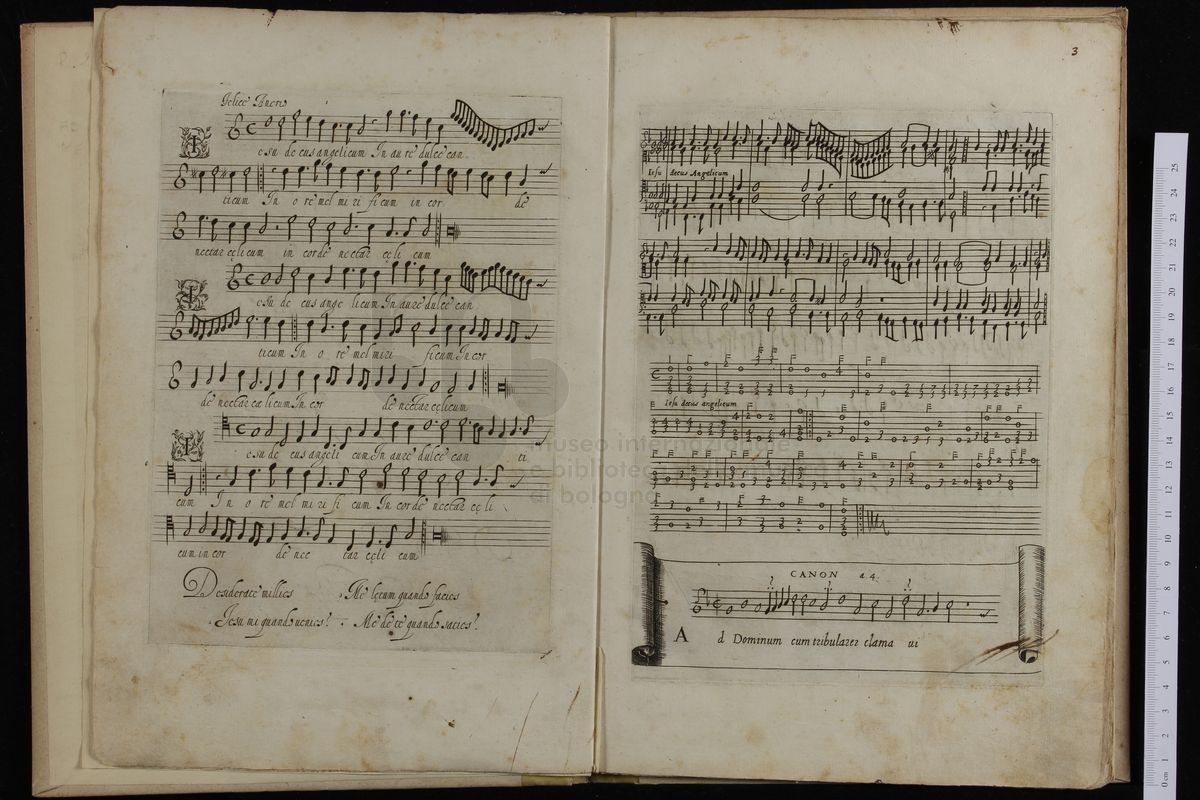 Felice Anerio
esu de cus angelicum In au re dulce can
ticum In o re mel mi ri ficum in cor de
nectar cęli cum in corde nectar cęli cum
esu de cus ange licum In aure dulce can
ticum In o re mel miri ficum In cor
de nectar cœ licum In cor de nectar cęlicum
esu de cus angeli cum In aure dulce can ti
cum In o re mel mi ri fi cum In corde nectar cę li
cum in cor de nec tar cęli cum
Desiderate millies Me lętum quando facies
Jesu mi quando venies? Me de te quando sacies?
3
Iesu decus Angelicum
Iesu decus angelicum
CANON a 4
A d Dominum cum tribularer clama ui
museo internazionale
e biblioteca
di bologna
0 cm 1 2 3 4 5 6 7 8 9 10 11 12 13 14 15 16 17 18 19 20 21 22 23 24 25